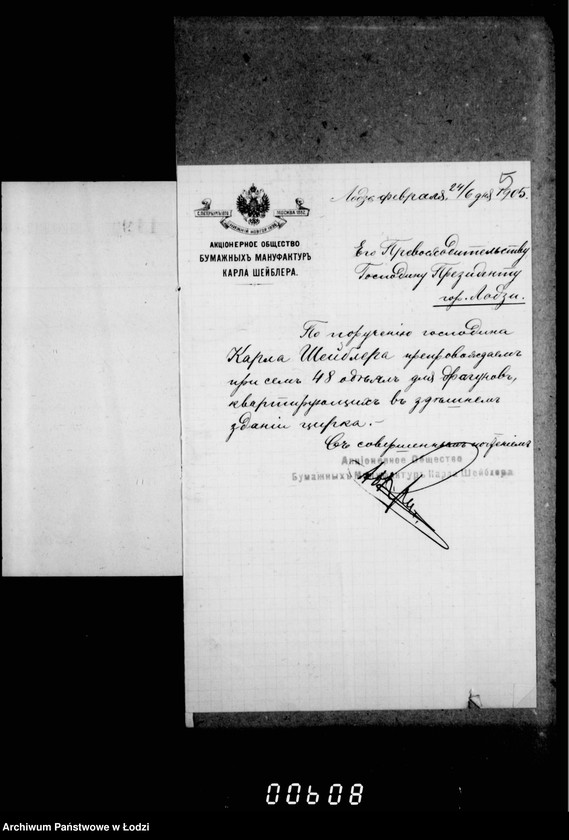 5
Лодзь февраля 24/6 дня 1905.
С.ПЕТЕРБ. 1870 МОСКВА 1882
НИЖНІЙ НОВГОР. 1896
АКЦІОНЕРНОЕ ОБЩЕСТВО
БУМАЖНЫХЪ МАНУФАКТУРЪ
КАРЛА ШЕЙБЛЕРА.
Его Превосходительству
Господину Президенту
гор. Лодзи.
По порученію господина
Карла Шейблера препровождаемъ
при семъ 48 одѣялъ для драгуновъ,
квартирующихъ въ здѣшнемъ
зданіи цирка.
Съ совершеннымъ почтеніемъ
Акціонерное Общество
Бумажныхъ Мануфактуръ Карла Шейблера
00608
Archiwum Państwowe w Łodzi